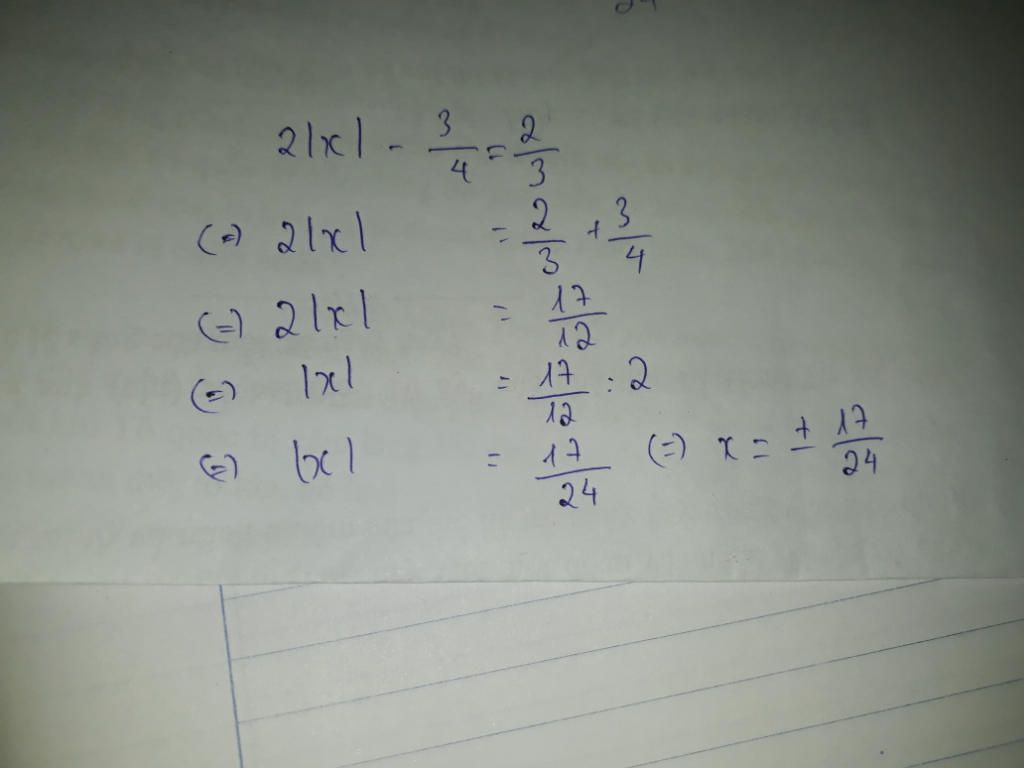 2|x| - 3/4 = 2/3
(=) 2|x| = 2/3 + 3/4
(=) 2|x| = 17/12
(=) |x| = 17/12 : 2
(=) |x| = 17/24 (=) x = ± 17/24